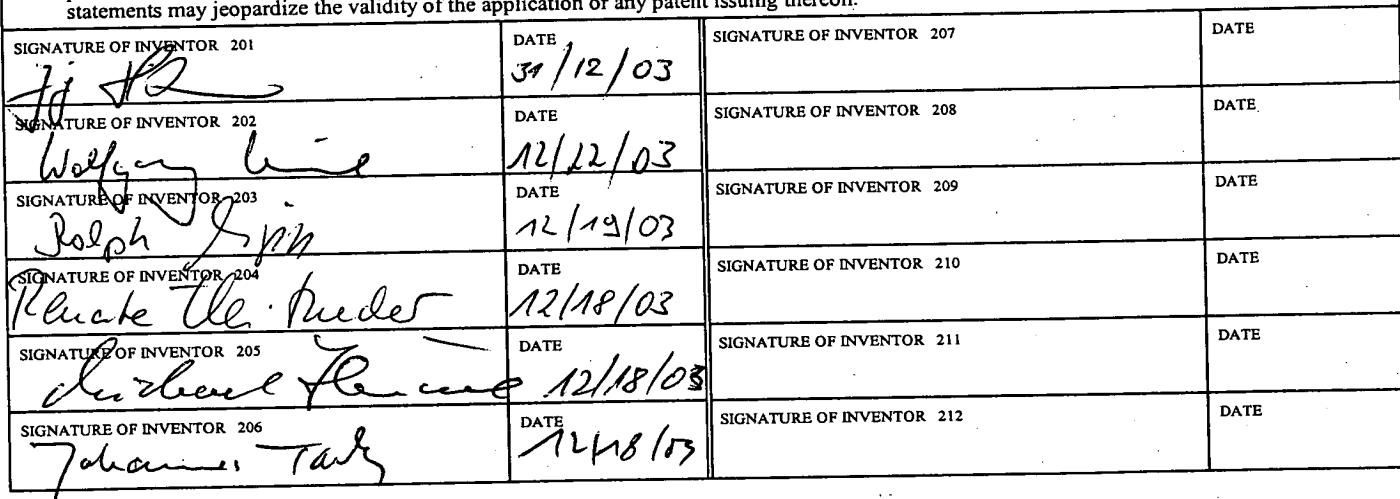 statements may jeopardize the validity of the application or any patent issuing thereon.
SIGNATURE OF INVENTOR 201
DATE
31/12/03
SIGNATURE OF INVENTOR 207
DATE
SIGNATURE OF INVENTOR 202
Wolfgang
DATE
12/22/03
SIGNATURE OF INVENTOR 208
DATE
SIGNATURE OF INVENTOR 203
Ralph
DATE
12/19/03
SIGNATURE OF INVENTOR 209
DATE
SIGNATURE OF INVENTOR 204
Renate
DATE
12/18/03
SIGNATURE OF INVENTOR 210
DATE
SIGNATURE OF INVENTOR 205
Michael
DATE
12/18/03
SIGNATURE OF INVENTOR 211
DATE
SIGNATURE OF INVENTOR 206
Johannes
DATE
12/18/03
SIGNATURE OF INVENTOR 212
DATE